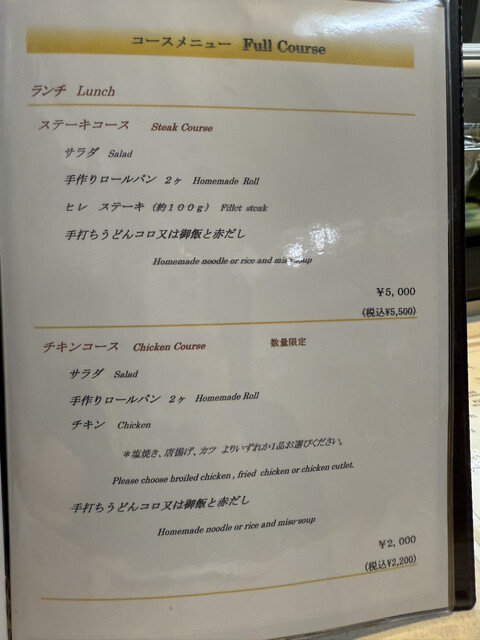 コースメニュー Full Course
ランチ Lunch
ステーキコース Steak Course
サラダ Salad
手作りロールパン 2ヶ Homemade Roll
ヒレ ステーキ (約100g) Fillet steak
手打ちうどんコロ又は御飯と赤だし
Homemade noodle or rice and miso-soup
¥5,000
(税込¥5,500)
チキンコース Chicken Course 数量限定
サラダ Salad
手作りロールパン 2ヶ Homemade Roll
チキン Chicken
*塩焼き、唐揚げ、カツ よりいずれか1品お選びください。
Please choose broiled chicken , fried chicken or chicken cutlet.
手打ちうどんコロ又は御飯と赤だし
Homemade noodle or rice and miso-soup
¥2,000
(税込¥2,200)